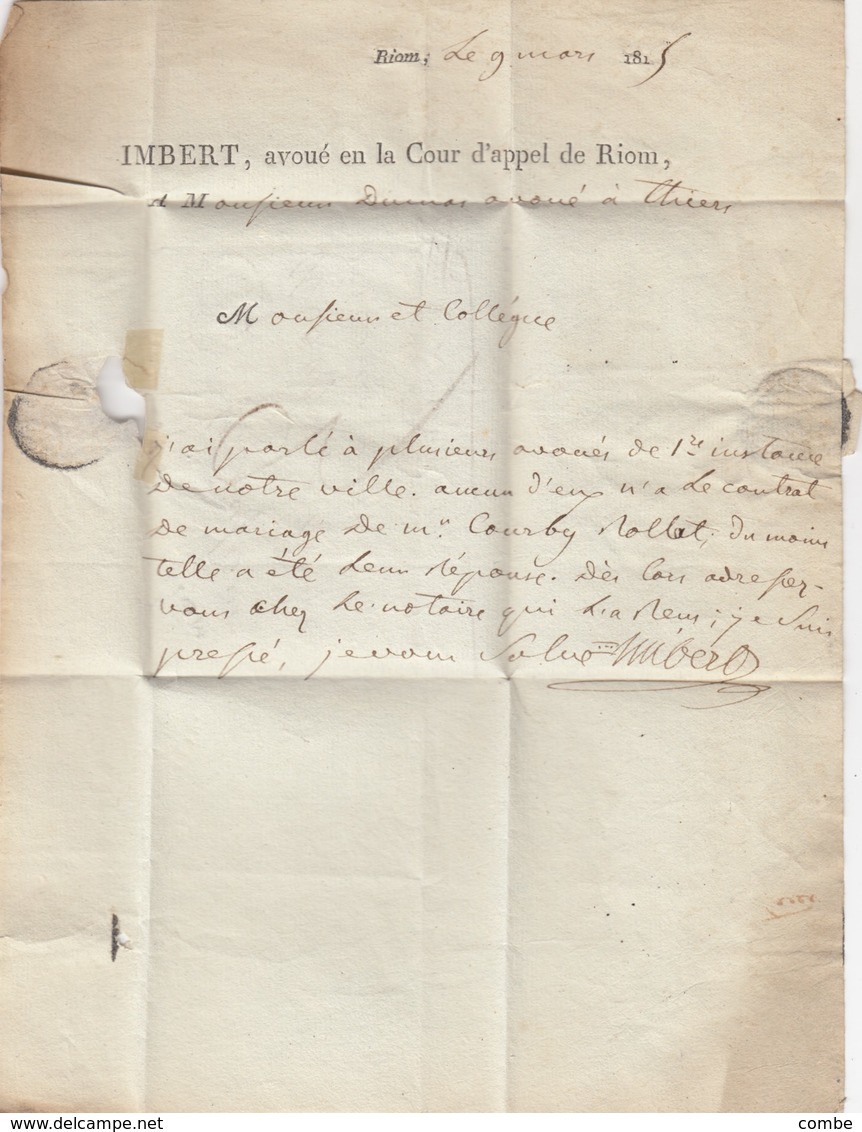 Riom, Le 9 mars 1815
IMBERT, avoué en la Cour d'appel de Riom,
A Monsieur Dumas avoué à thiers
Monsieur et Collégue
j'ai parlé à plusieurs avoués de 1re instance
de notre ville. aucun d'eux n'a le contrat
de mariage de mr. Courby Rollet, du moins
telle a été leur réponse. Dès lors adressez-
vous chez le notaire qui l'a reçu ; je suis
pressé, je vous salue Imbert
delcampe.net
combe